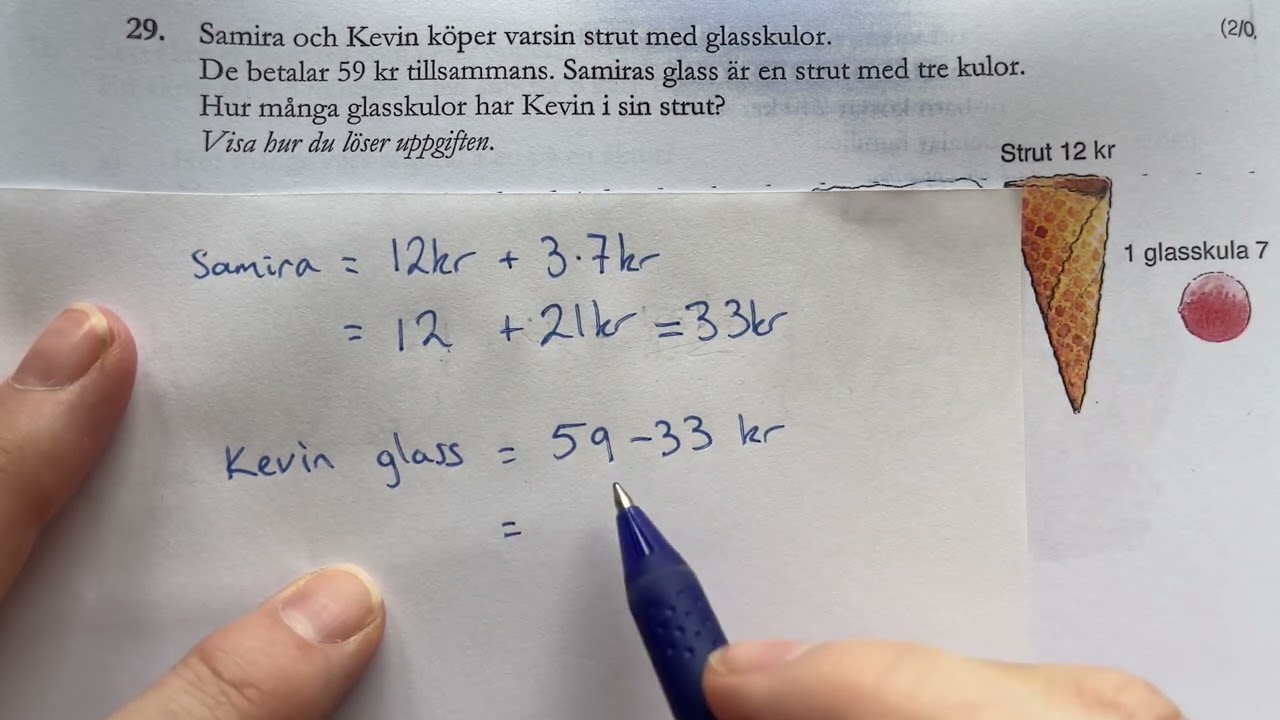 29. Samira och Kevin köper varsin strut med glasskulor.
De betalar 59 kr tillsammans. Samiras glass är en strut med tre kulor.
Hur många glasskulor har Kevin i sin strut?
Visa hur du löser uppgiften.
(2/0
Strut 12 kr
1 glasskula 7
Samira = 12kr + 3·7kr
= 12 + 21kr = 33kr
Kevin glass = 59-33 kr
=